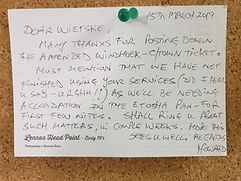 15TH MARCH 2019
DEAR WIETSKE,
MANY THANXS FOR POSTING DOWN
THE AMENDED WINDHOEK - C/TOWN TICKET.
MUST MENTION THAT WE HAVE NOT
FINISHED USING YOUR SERVICES (DO I HEAR
U SAY - URGH!!) AS WE'LL BE NEEDING
ACCOMODATION IN THE ETOSHA PAN - FOR
FIRST FEW NITES. SHALL RING U ABOUT
SUCH MATTERS, IN COUPLE WEEKS. HOPE THIS
SEES U WELL. REGARDS
Lennox Head Point - Early 70's